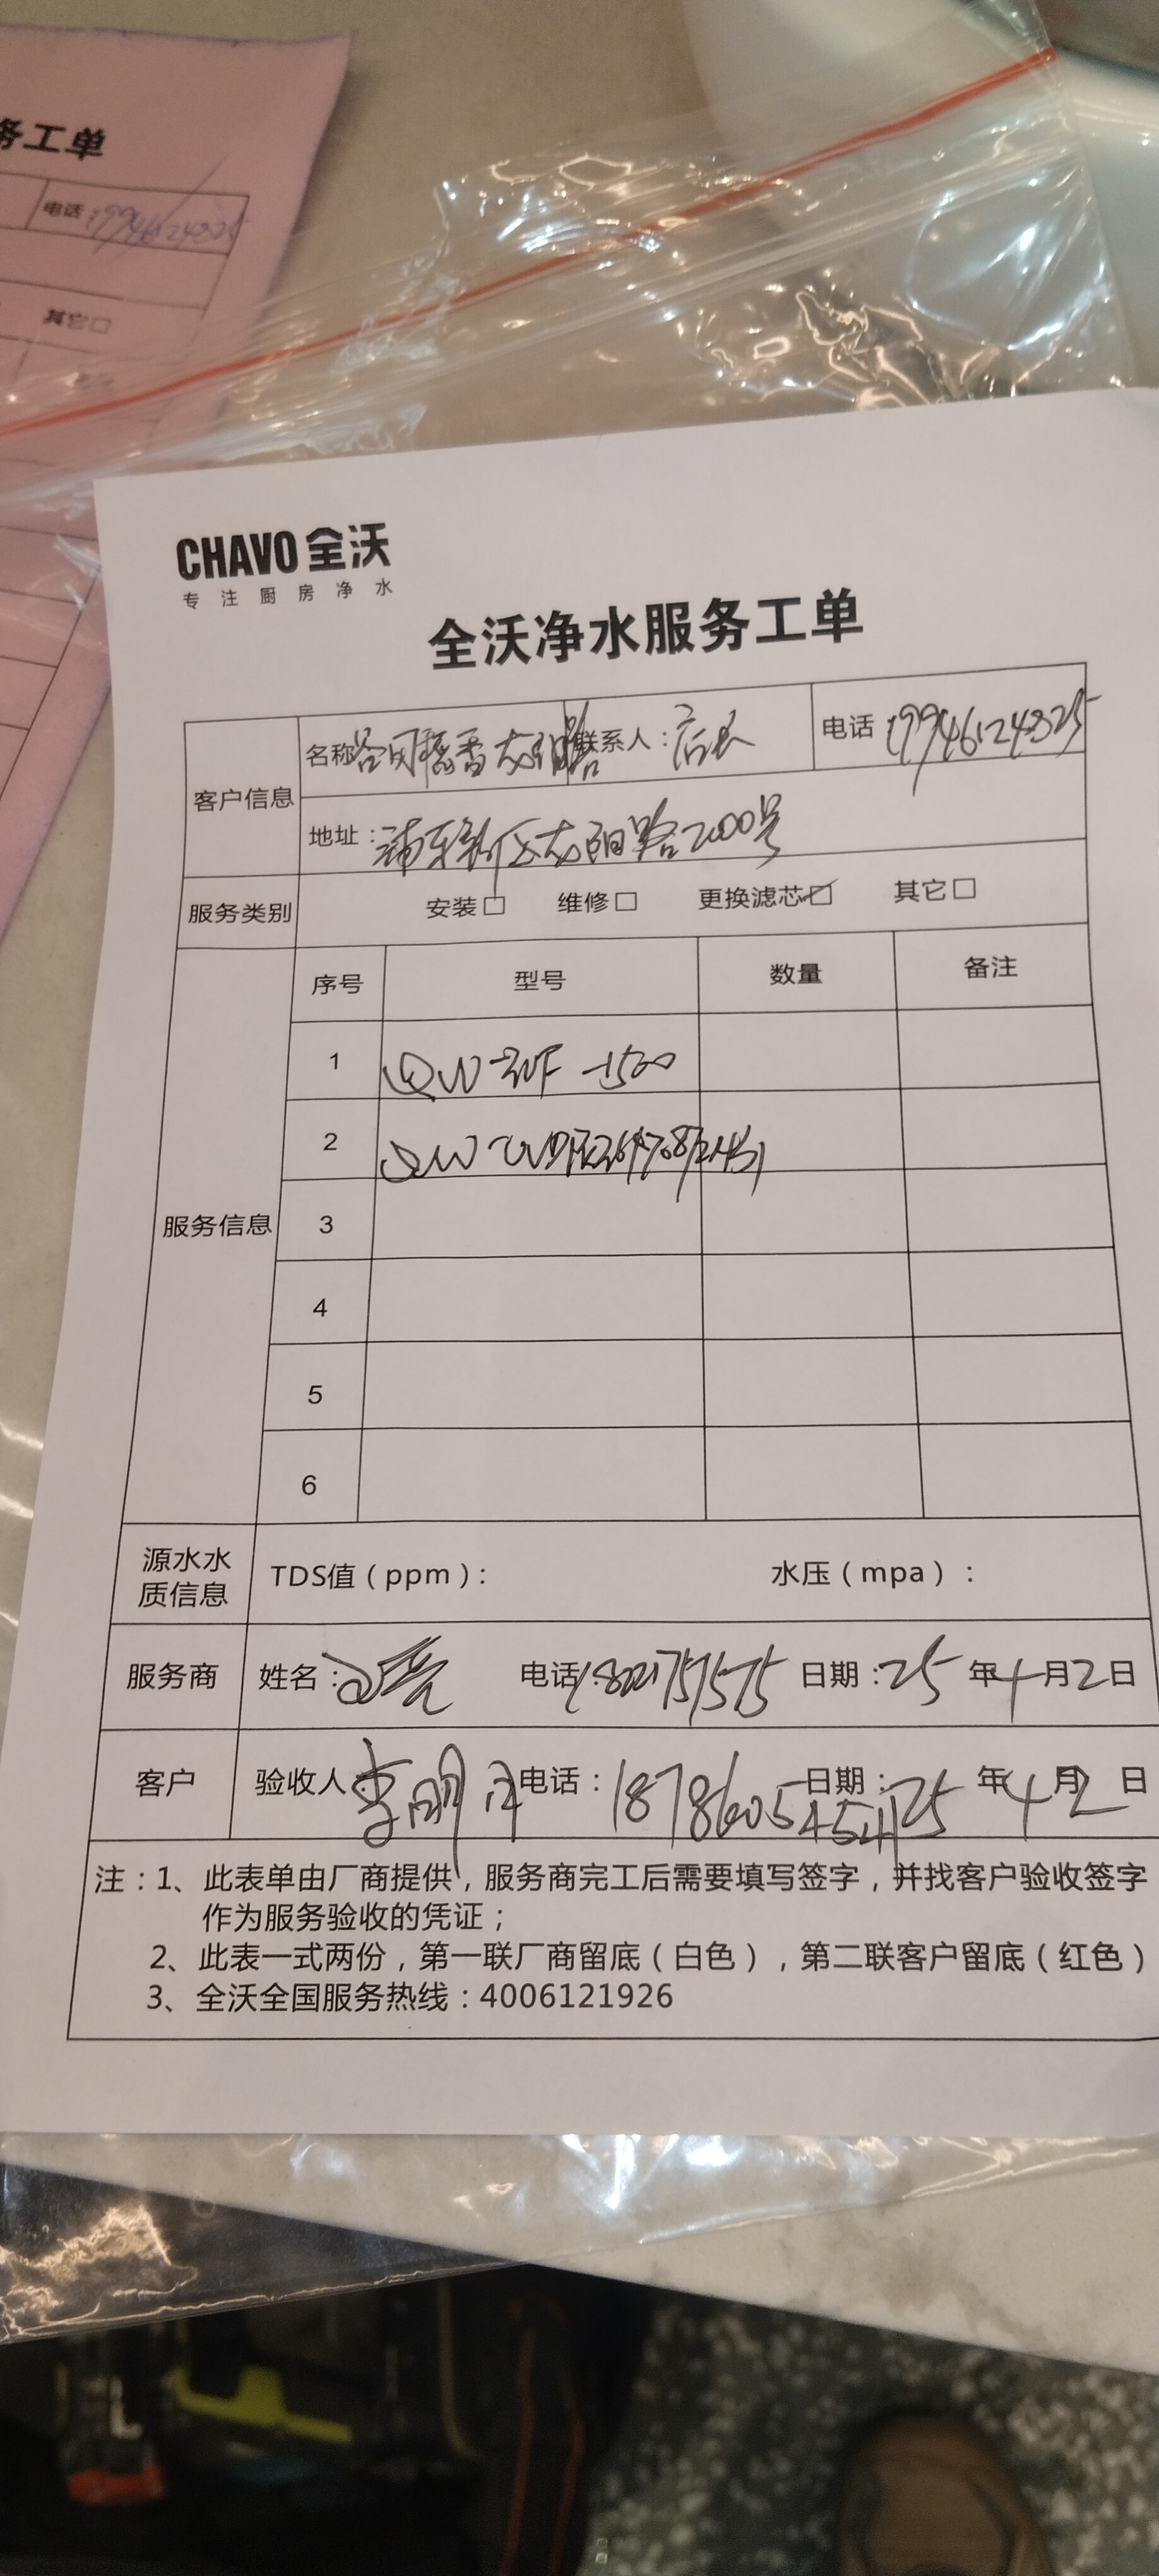 务工单
电话:19946124325
其它□
CHAVO 全沃
专注厨房净水
全沃净水服务工单
客户信息
名称 联系人:店长 电话 19946124325
地址:浦东新区太阳路2000号
服务类别 安装□ 维修□ 更换滤芯☑ 其它□
服务信息
序号 型号 数量 备注
1 QW 1500
2 QW
3
4
5
6
源水水质信息 TDS值(ppm): 水压(mpa):
服务商 姓名: 电话 18021751575 日期:25年4月2日
客户 验收人 李明 电话:18786054541 日期:25年4月2日
注:1、此表单由厂商提供,服务商完工后需要填写签字,并找客户验收签字
作为服务验收的凭证;
2、此表一式两份,第一联厂商留底(白色),第二联客户留底(红色)
3、全沃全国服务热线:4006121926